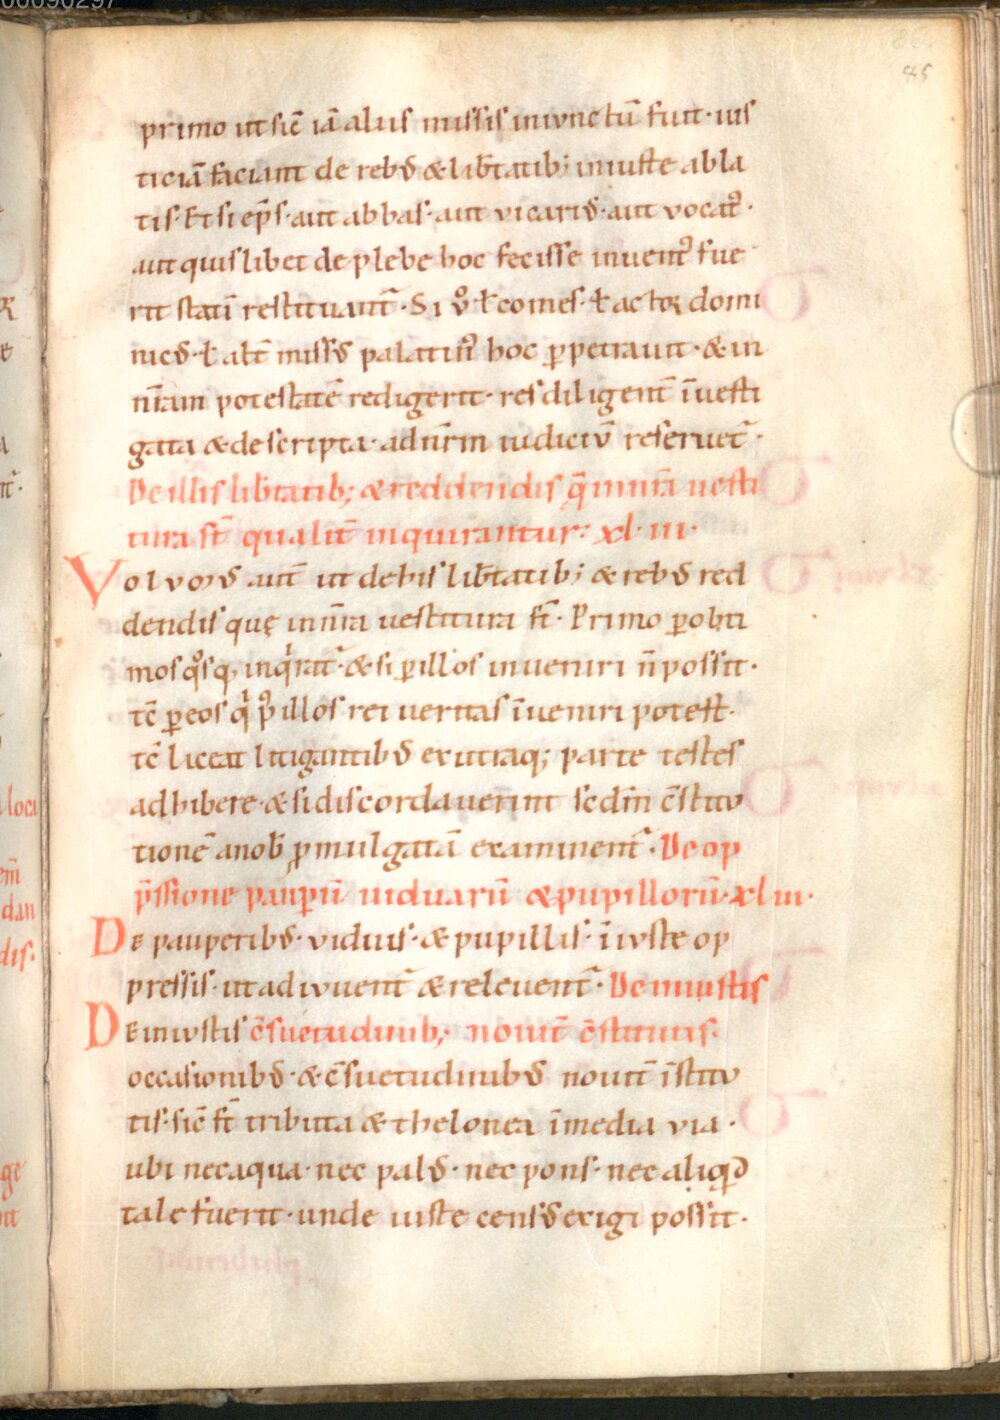 85
primo ut sic̄ iā aliis missis iniunctū fuit· ius
ticiā faciant de rebꝰ & lib̄tatib; iniuste abla
tis· Et si ep̄s· aut abbas· aut vicariꝰ· aut vocat᷒·
aut quislibet de plebe hoc fecisse inuent᷒ fue
rit statī restituant᷑· Si ů ƚ comes· ƚ actoꝝ domi
nicꝰ· ƚ alt̄ missꝰ palatin᷒ hoc ꝑpetrauit· & in
nr̄am potestatē redigerit· res diligent̄ īuesti
gata & descripta· ad nr̄m iudiciū reseruet᷑·
De illis lib̄tatib; & reddendis q̄ in nr̄a uesti
tura st̄ qualit̄ inquirantur: xl· iii·
Volumꝰ aut̄ ut de his lib̄tatib; & rebꝰ red
dendis quę in nr̄a uestitura st̄· Primo ꝑ opti
mos qͦsq, inqͥrat᷑· & si ꝑ illos inueniri n̄ possit·
tc̄ ꝑ eos qͥ p᷒ illos rei ueritas īueniri potest·
tc̄ liceat litigantibꝰ ex utraq; parte testes
adhibere· & si discordauerint scd̄m c̄stitu
tionē a nob̄ ꝓmulgatā examinent᷑· De op
p̄ssione pauꝑū uiduarū & pupillorū· xl iii·
De pauperibꝰ· viduis· & pupillis· īiuste op
pressis· ut adiuuent᷑ & releuent᷑· De iniustis
De iniustis c̄suetudinib; nouit̄ c̄stitutis·
occasionibꝰ· & c̄suetudinibꝰ nouit̄ īstitu
tis· sic̄ st̄ tributa & thelonea ī media via·
ubi nec aqua· nec palꝰ· nec pons· nec aliqͩ
tale fuerit· unde iuste censꝰ exigi possit·